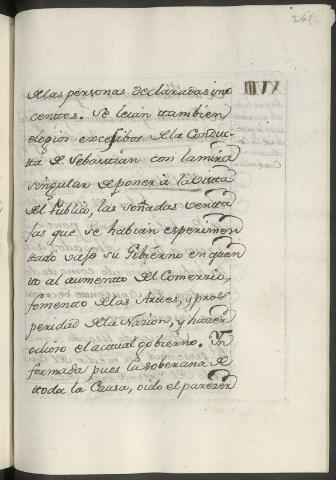 241
de las personas declaradas ino
centes. Se leían tambien
elogios excesibos de la Conduc-
ta de Sebastian con la mira
singular de poner à la vista
del Publico, las soñadas venta
jas que se habian esperimen
tado vajo su Gobierno en quan
to al aumento del Comercio,
fomento de las Artes, y pros
peridad de la Nacion, y hacer
odioso el actual gobierno. In
formada pues la soberana de
toda la Causa, oido el parezer